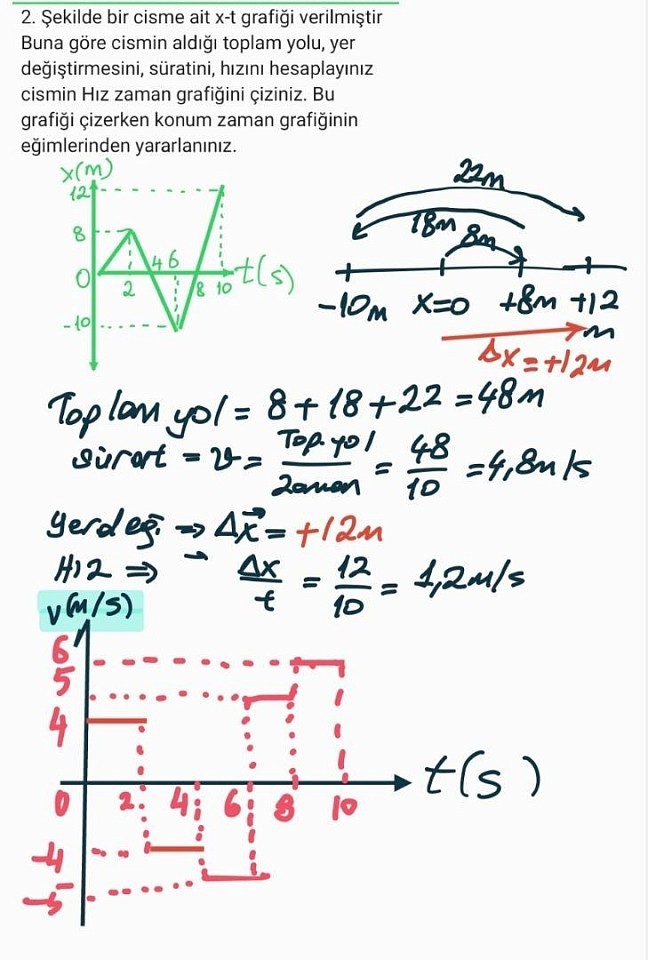 2. Şekilde bir cisme ait x-t grafiği verilmiştir
Buna göre cismin aldığı toplam yolu, yer
değiştirmesini, süratini, hızını hesaplayınız
cismin Hız zaman grafiğini çiziniz. Bu
grafiği çizerken konum zaman grafiğinin
eğimlerinden yararlanınız.
x(m)
12
8
0
2
4 6
8 10
t(s)
-10
22m
18m
8m
-10m x=0 +8m +12 m
Δx = +12m
Toplam yol = 8+18+22 = 48m
Sürat = v = Top.yol / Zaman = 48/10 = 4,8m/s
Yerdeğ. => Δx = +12m
Hız => Δx/t = 12/10 = 1,2m/s
v(m/s)
6
5
4
0 2 4 6 8 10
t(s)
-4
-5